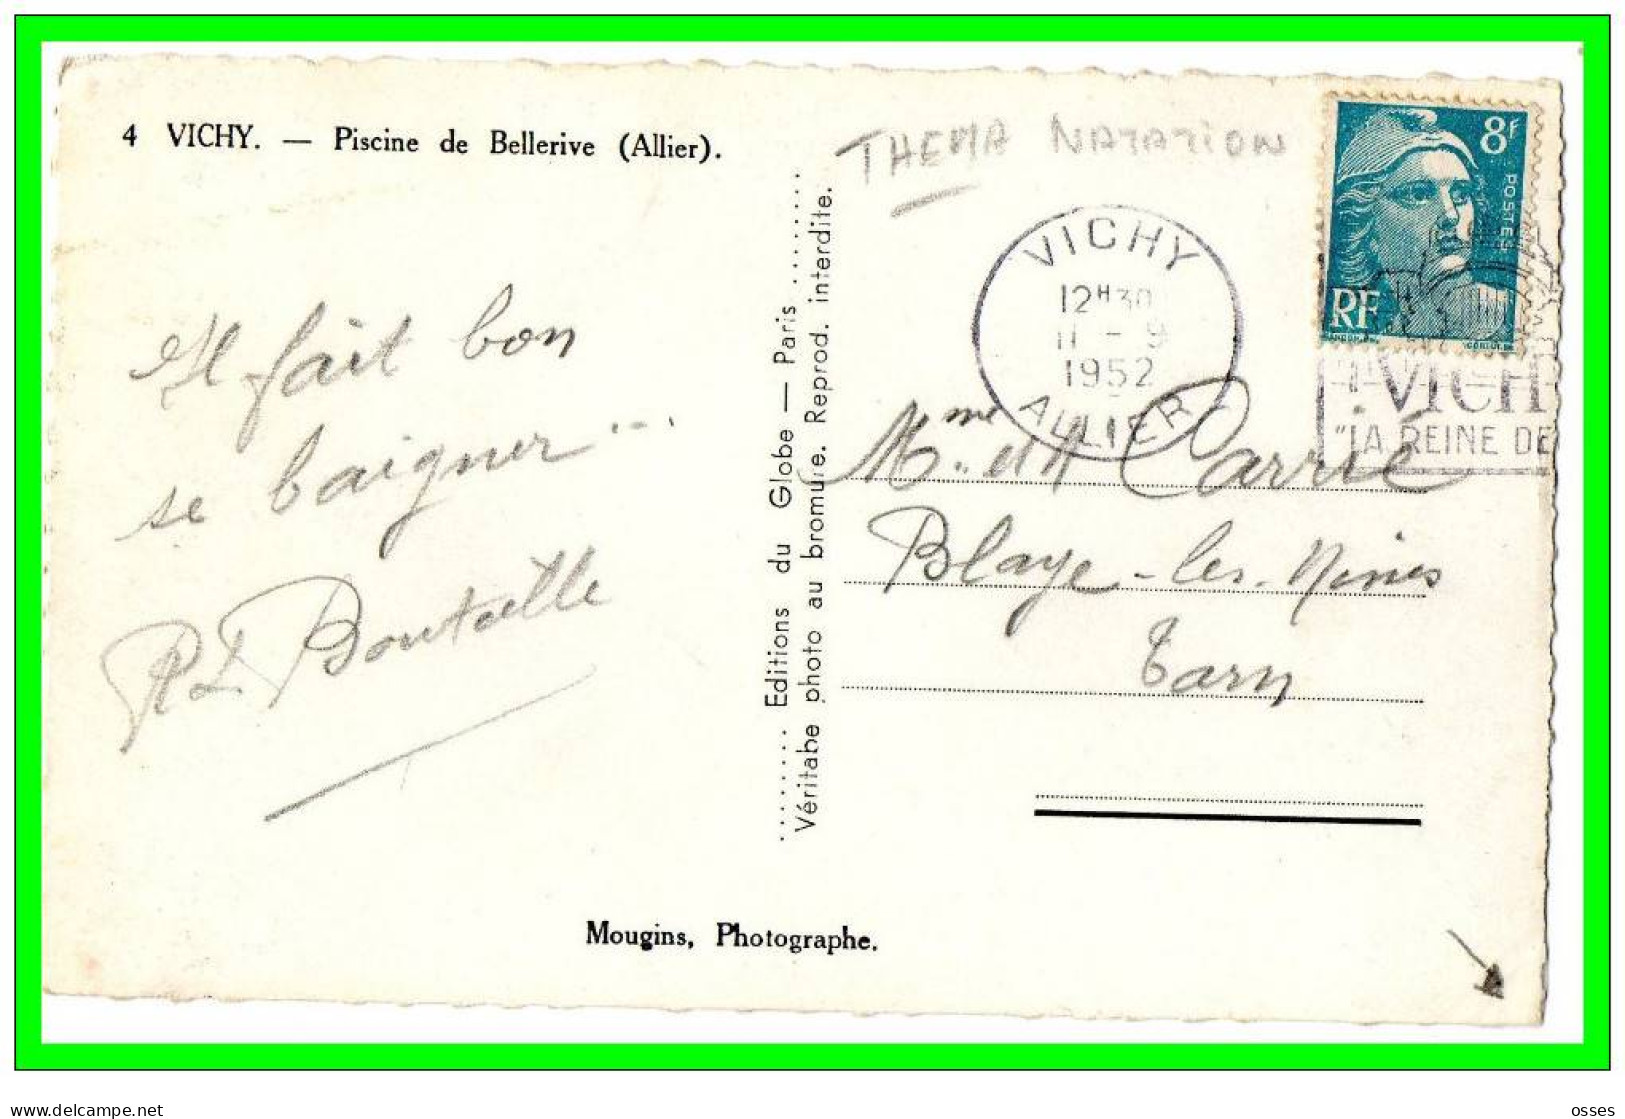 4 VICHY. — Piscine de Bellerive (Allier).
THEMA NATATION
8f
POSTES
RF
VICHY
12H30
11 - 9
1952
ALLIER
VICH
"LA REINE DE
Il fait bon
se baigner...
R L Bouteille
........ Editions du Globe — Paris ........
Véritabe photo au bromure. Reprod. interdite.
Mme et M Carrié
Blaye-les-Mines
Tarn
Mougins, Photographe.
www.delcampe.net
osses